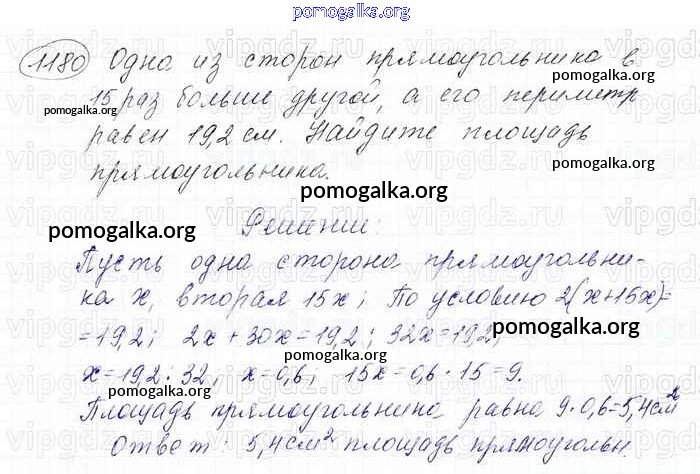 pomogalka.org
1180 Одна из сторон прямоугольника в
15 раз больше другой, а его периметр
равен 19,2 см. Найдите площадь
прямоугольника.
Решение:
Пусть одна сторона прямоугольни-
ка x, вторая 15x; По условию 2(x+15x)=
=19,2; 2x+30x=19,2; 32x=19,2;
x=19,2:32, x=0,6; 15x=0,6·15=9.
Площадь прямоугольника равна 9·0,6=5,4см²
Ответ: 5,4см² площадь прямоугольн.
pomogalka.org
pomogalka.org
pomogalka.org
pomogalka.org
pomogalka.org
pomogalka.org
pomogalka.org
pomogalka.org
vipgdz.ru